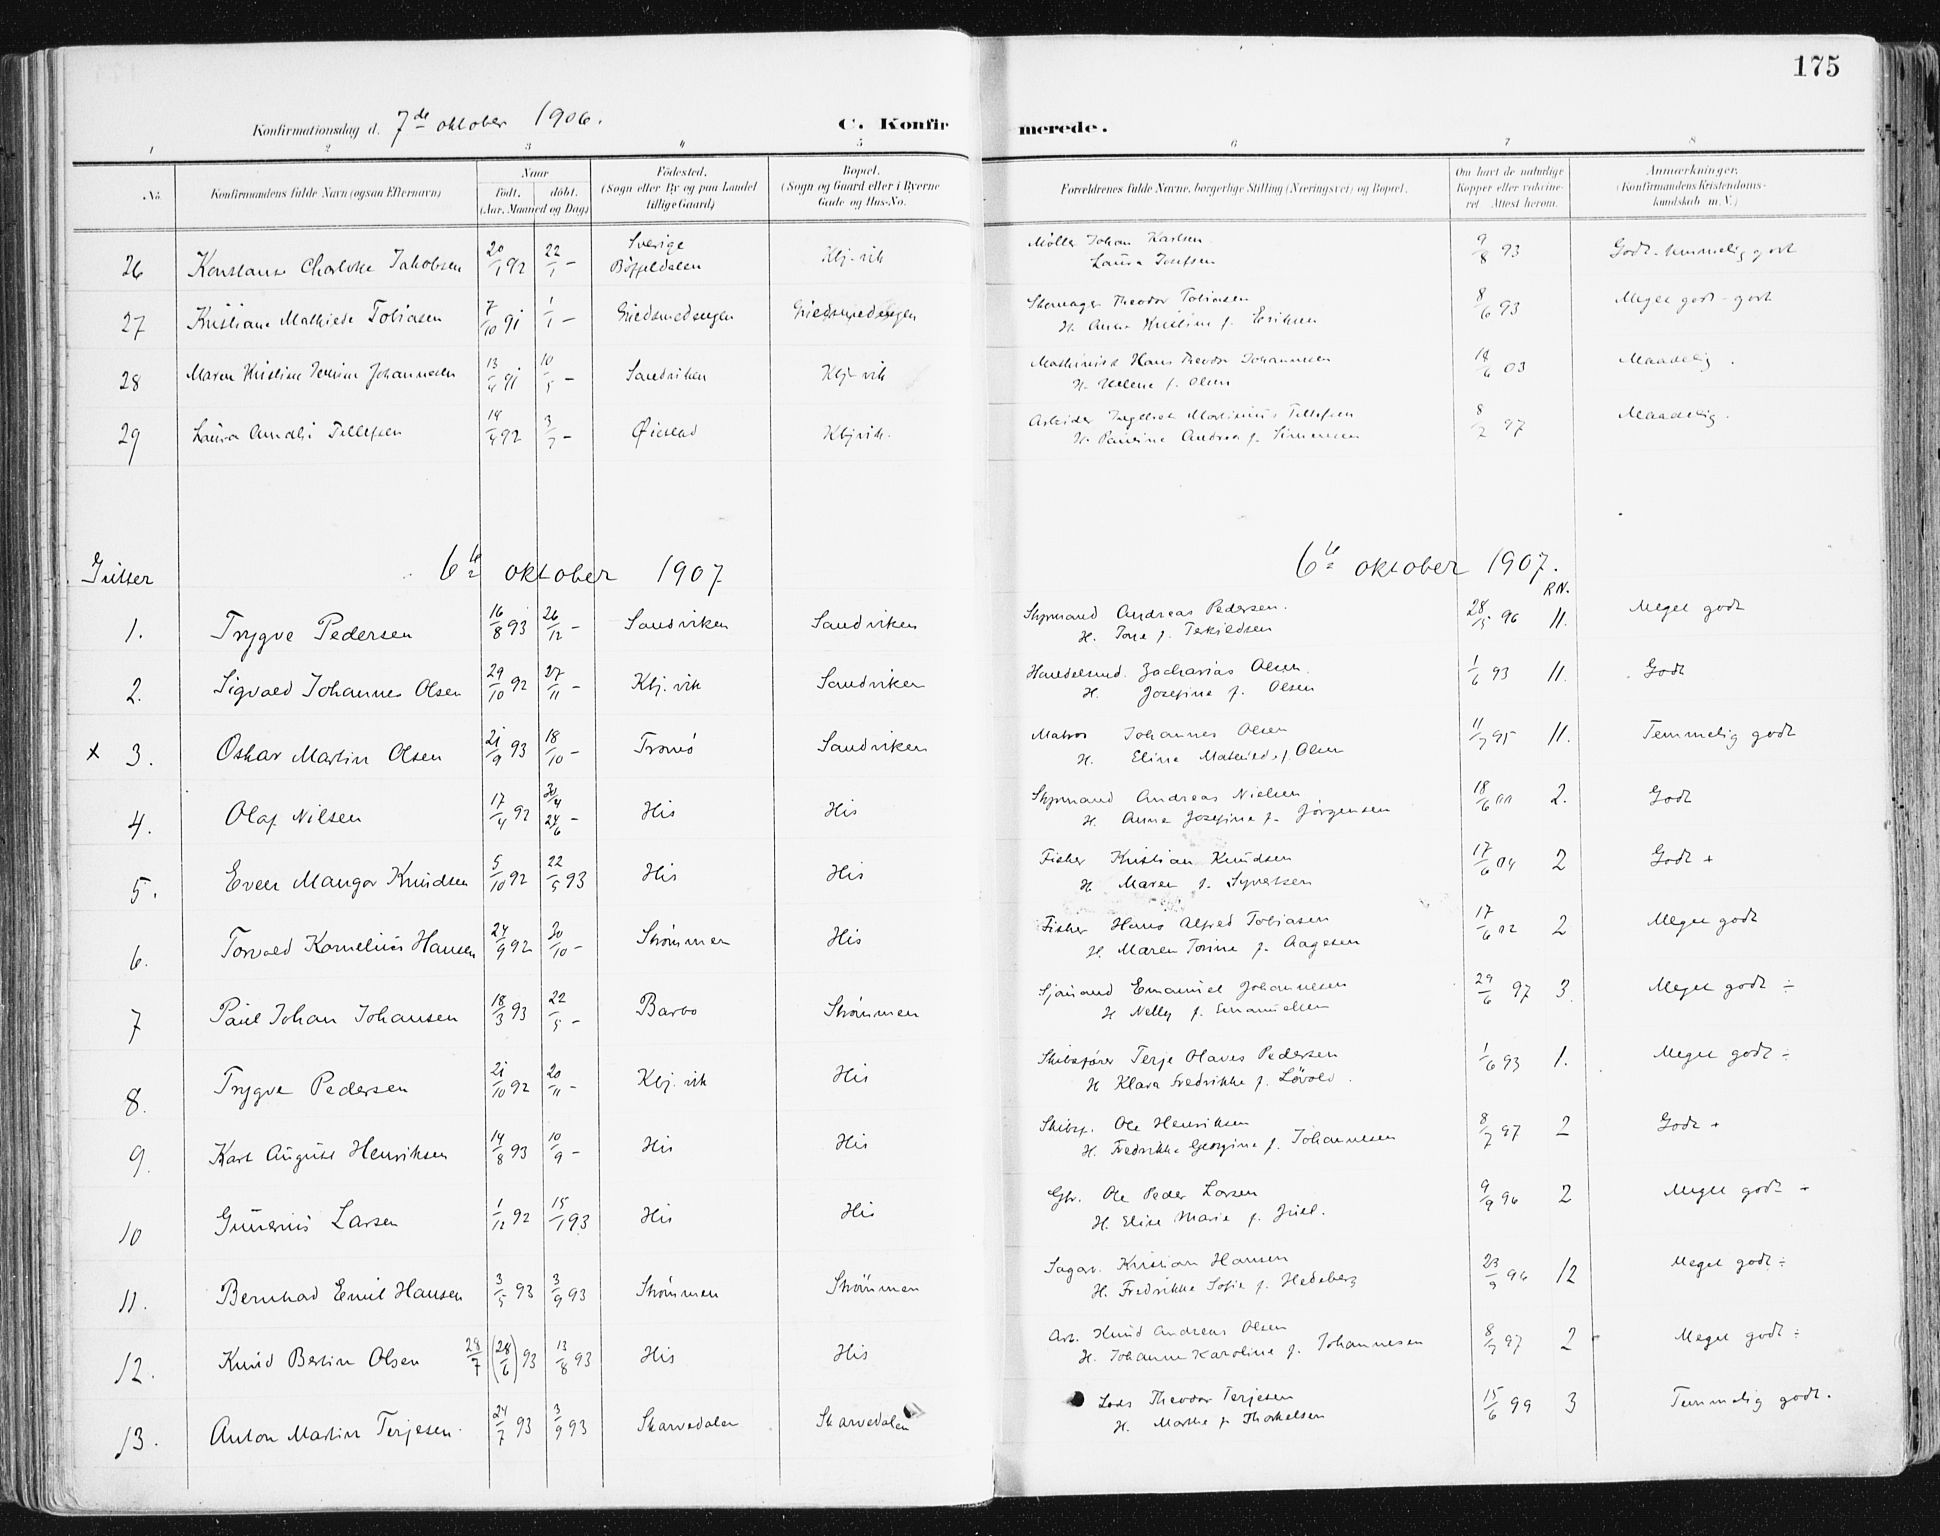 175
Konfirmationsdag d. 7de oktober 1906.
C. Konfirmerede.
1 2 3 4 5 6 7 8
No. Konfirmandens fulde Navn (ogsaa Efternavn) Naar Født. døbt. (Aar, Maaned og Dag) Fødested. (Sogn eller By og paa Landet tillige Gaard) Bopæl. (Sogn og Gaard eller i Byerne Gade og Hus-No. Forældrenes fulde Navne, borgerlige Stilling (Næringsvei) og Bopæl. Om havt de naturlige Kopper eller vaccineret Attest herom. Anmærkninger. (Konfirmandens Kristendomskundskab m. V.)
26 Konstanse Charlotte Jakobsen 20/1 92 22/1 - Sverige Kbj. vik Møller Johan Karlsen 9/8 93 Godt - temmelig godt
Laura Josefsen
27 Kristiane Mathilde Tobiasen 7/10 91 1/1 - Theodor Tobiasen 8/6 93 Meget godt - godt
H. Anna Kristine f. Eriksen
28 Maren Kristine Johannesen 13/4 91 10/5 - Sandviken Kbj. vik Maskinist Hans Theodor Johannesen 18/6 03 Maadelig.
H. Helene f. Olsen
29 Laura Amalie Tellefsen 14/4 92 3/7 - Øiestad Kbj. vik. Arbeider Ingebret Martinius Tellefsen 8/7 97 Maadelig.
H. Pauline Andrea f. Simonsen
Gutter 6te oktober 1907 6te oktober 1907.
R.N.
1. Trygve Pedersen 16/8 93 26/12 - Sandviken Sandviken Styrmand Andreas Pedersen. 28/5 96 11. Meget godt
H. Tone f. Terkildsen
2. Sigvald Johannes Olsen 29/10 92 27/11 - Kbj. vik Sandviken Handelsmd. Zacharias Olsen. 1/6 93 11. Godt
H. Josefine f. Olsen
x 3. Oskar Martin Olsen 21/9 93 18/10 - Tromø Sandviken Matros Johannes Olsen 11/7 95 11. Temmelig godt
H. Eline Mathilde f. Olsen
4. Olaf Nilsen 17/4 92 24/6 - His His Styrmand Andreas Nielsen 18/6 2. Godt
H. Anna Josefine f. Jørgensen
5. Even Mangor Knudsen 5/10 92 22/5 93 His His Fisker Kristian Knudsen 17/6 04 2 Godt +
H. Maren f. Syvertsen
6. Torvald Kornelius Hansen 24/9 92 30/10 - Strømmen His Fisker Hans Alfred Tobiasen 17/6 02 2 Meget godt
H. Maren Torine f. Aagesen
7 Paul Johan Johansen 18/3 93 22/5 - Barbo Strømmen Sjømand Emanuel Johannesen 29/6 97 3. Meget godt ÷
H. Nelly f. Emanuelsen
8. Trygve Pedersen 21/10 92 20/11 - Kbj. vik His Skibsfører Terje Olaves Pedersen 1/6 93 1. Meget godt ÷
H. Klara Fredrikke f. Løvold.
9. Karl August Henriksen 14/8 93 10/9 - His His Skibsf. Ole Henriksen 8/7 97 2 Godt +
H. Fredrikke Georgine f. Johannesen
10 Gunerius Larsen 1/12 92 15/1 93 His His Gbr. Ole Peder Larsen 9/9 96 2 Meget godt ÷
H. Elise Marie f. Juel.
11. Bernhard Emil Hansen 3/5 93 3/9 93 Strømmen Strømmen Sagarb. Kristian Hansen 23/9 96 12 Meget godt ÷
H. Fredrikke Sofie f. Hedeberg
12. Knud Bertin Olsen 28/7 (28/6) 93 13/8 93 His His Arb. Knud Andreas Olsen 8/7 97 2 Meget godt ÷
H. Johanne Karoline f. Johannesen
13. Anton Martin Terjesen. 24/7 93 3/9 93 Skarvedalen Skarvedalen Lods Theodor Terjesen 15/6 99 3 Temmelig godt.
H. Marthe f. Thorkelsen